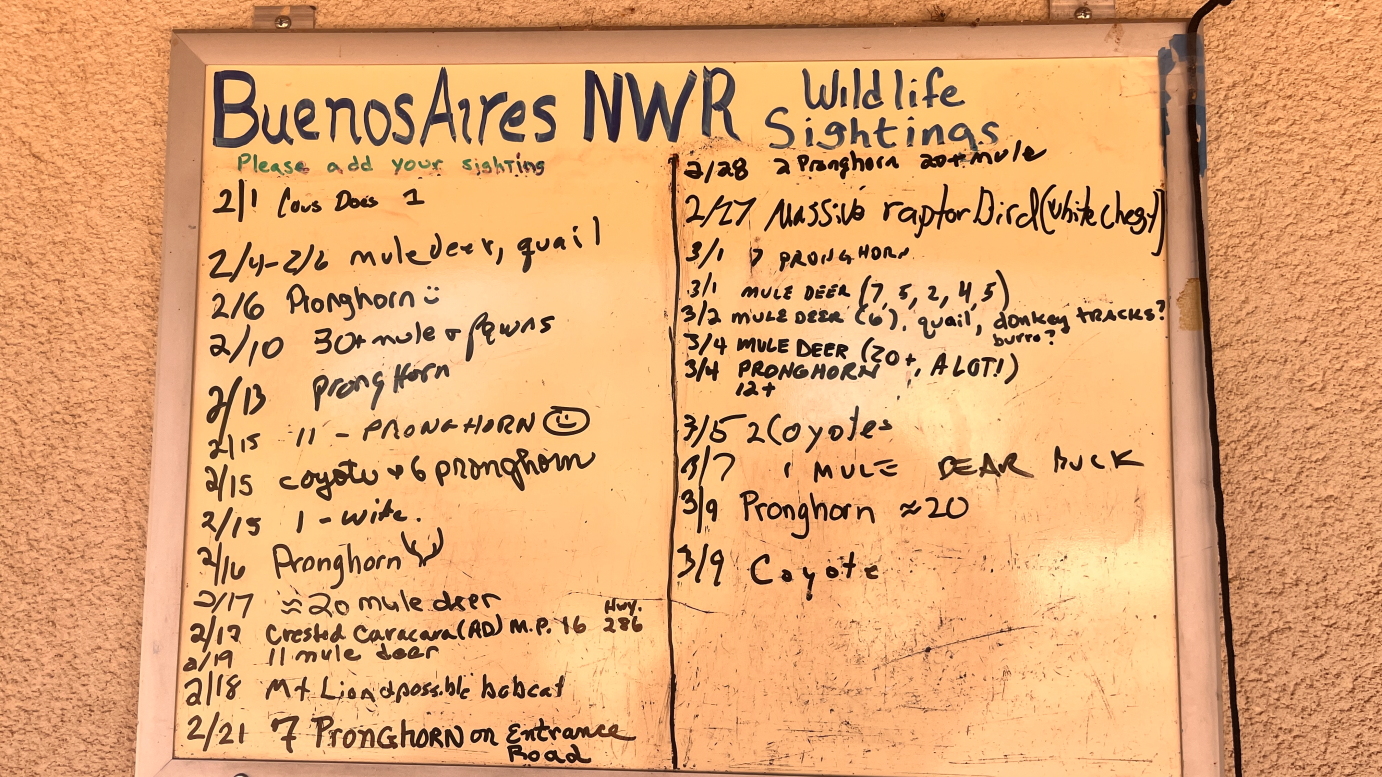 Buenos Aires NWR Wildlife Sightings
Please add your sighting
2/1 Cous Does 1
2/4-2/6 mule deer, quail
2/6 Pronghorn
2/10 30+ mule + fawns
2/13 pronghorn
2/15 11 - PRONGHORN
2/15 coyote + 6 pronghorn
2/15 1 - wife.
2/16 Pronghorn
2/17 ≈20 mule deer
2/17 Crested Caracara (AD) M.P. 16 Hwy. 286
2/19 11 mule deer
2/18 Mt Lion & possible bobcat
2/21 7 PRONGHORN on Entrance Road
2/28 2 Pronghorn 20+ mule
2/27 Massive raptor Bird (white chest)
3/1 7 PRONGHORN
3/1 MULE DEER (7, 5, 2, 4, 5)
3/2 MULE DEER (6), quail, donkey TRACKS?
burro?
3/4 MULE DEER (20+, A LOT!)
3/4 PRONGHORN
12+
3/5 2 Coyotes
3/7 1 MULE DEAR BUCK
3/9 Pronghorn ≈20
3/9 Coyote